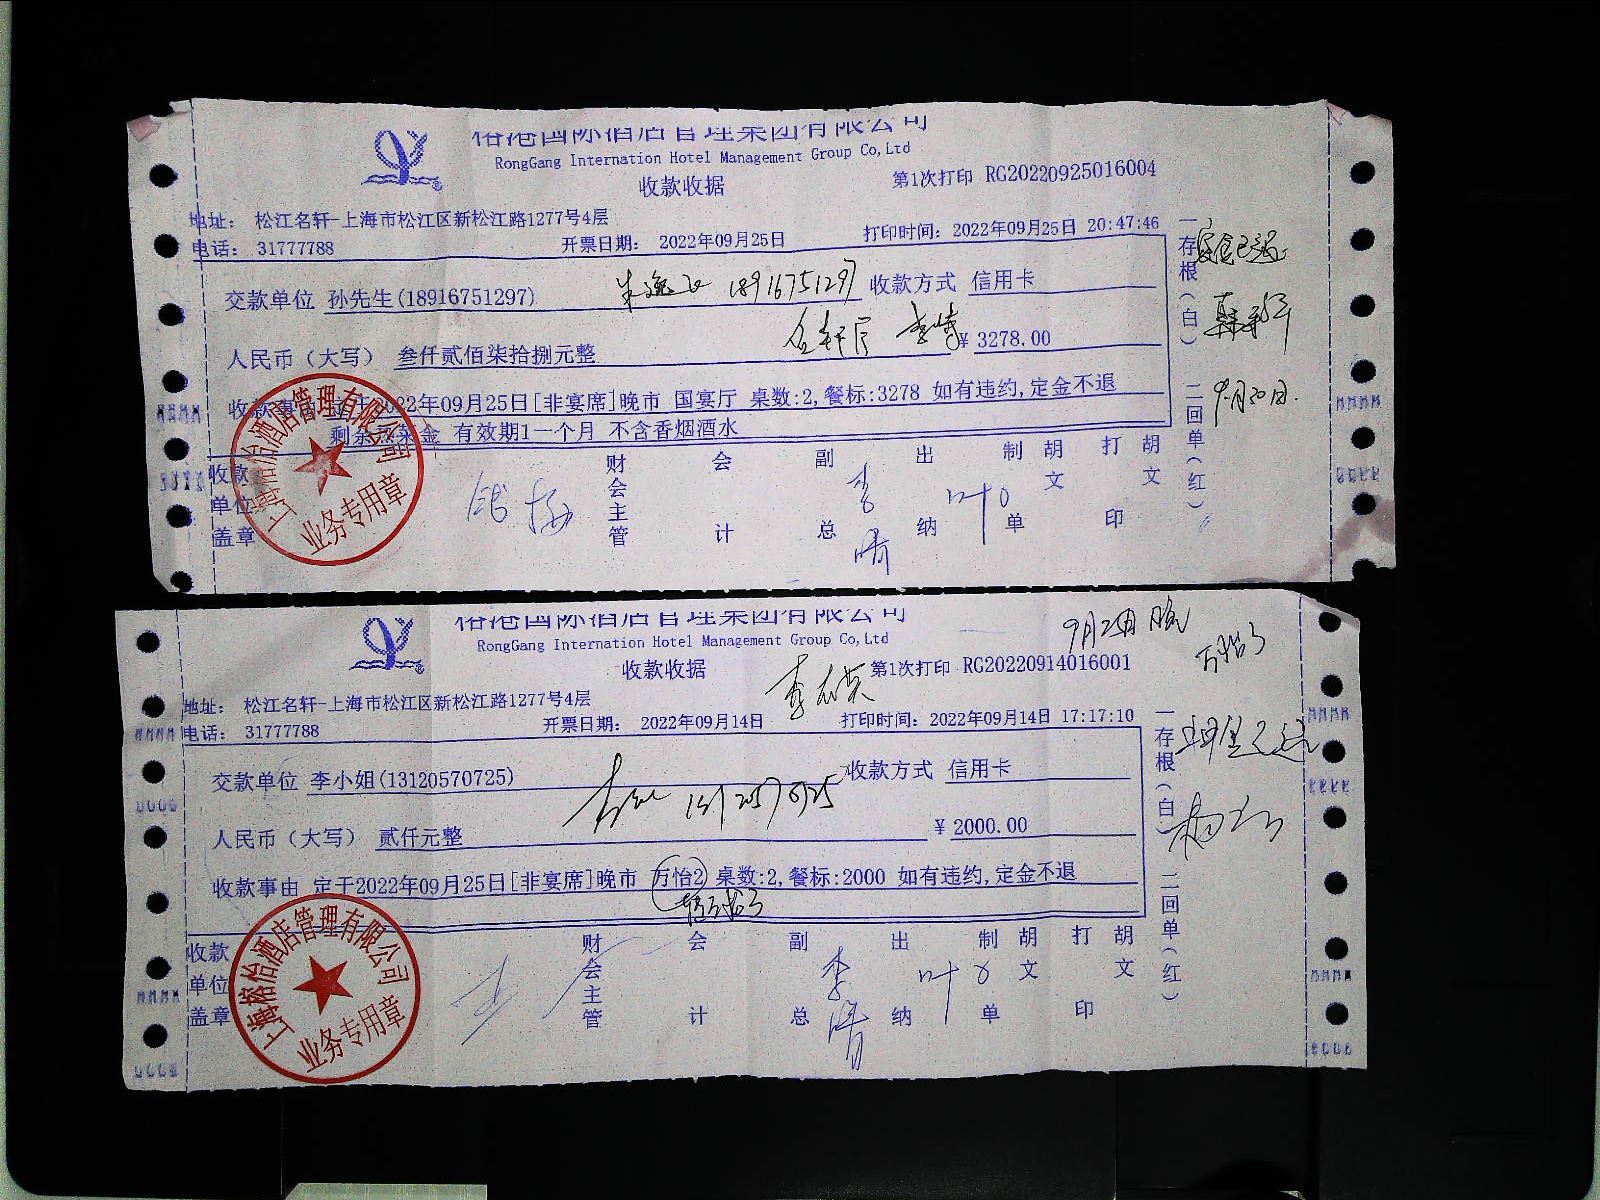 榕港国际酒店管理集团有限公司
RongGang Internation Hotel Management Group Co,Ltd
收款收据
第1次打印 RG20220925016004
地址： 松江名轩-上海市松江区新松江路1277号4层
电话： 31777788
开票日期： 2022年09月25日
打印时间：2022年09月25日 20:47:46
交款单位 孙先生(18916751297)
18916751297
收款方式 信用卡
人民币（大写） 叁仟贰佰柒拾捌元整
¥ 3278.00
收款事由 定于2022年09月25日[非宴席]晚市 国宴厅 桌数:2,餐标:3278 如有违约,定金不退
有效期1一个月 不含香烟酒水
收款单位盖章
财会主管
会计
副总
出纳
制单
胡文
打印
胡文
一存根（白）
二回单（红）
定金已退
9月30日.
业务专用章
榕港国际酒店管理集团有限公司
RongGang Internation Hotel Management Group Co,Ltd
收款收据
第1次打印 RG20220914016001
9月25日 晚
地址： 松江名轩-上海市松江区新松江路1277号4层
电话： 31777788
开票日期： 2022年09月14日
打印时间：2022年09月14日 17:17:10
交款单位 李小姐(13120570725)
13120570725
收款方式 信用卡
人民币（大写） 贰仟元整
¥ 2000.00
收款事由 定于2022年09月25日[非宴席]晚市 万怡2 桌数:2,餐标:2000 如有违约,定金不退
收款单位盖章
财会主管
会计
副总
李清
出纳
制单
胡文
打印
胡文
一存根（白）
二回单（红）
上海榕怡酒店管理有限公司
业务专用章